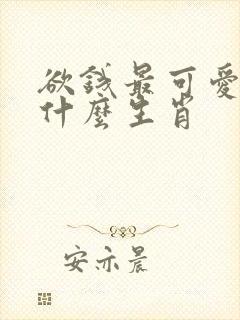 欲钱最可爱
什麼生肖
安亦晨